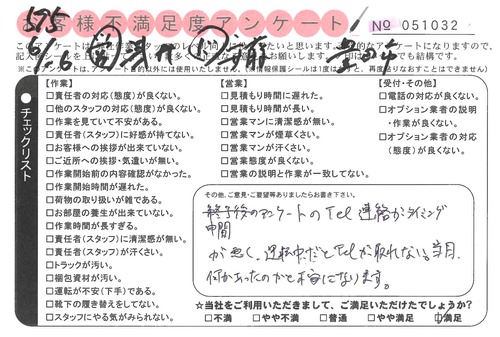 575
お客様不満足度アンケート
No 051032
6/6
このアンケートは
記入後シールを
※このアンケートは、アンケート目的以外には使用いたしません。(再度貼りなおすことはできません)
チェックリスト
【作業】
□責任者の対応(態度)が良くない。
□他のスタッフの対応(態度)が良くない。
□作業を見ていて不安がある。
□責任者(スタッフ)に好感が持てない。
□お客様への挨拶が出来ていない。
□ご近所への挨拶・気遣いが無い。
□作業開始前の内容確認がなかった。
□作業開始時間が遅れた。
□荷物の取り扱いが雑である。
□お部屋の養生が出来ていない。
□作業時間が長すぎる。
□責任者(スタッフ)に清潔感が無い。
□責任者(スタッフ)が汗くさい。
□トラックが汚い。
□梱包資材が汚い。
□運転が不安(下手)である。
□靴下の履き替えをしてない。
□スタッフにやる気がみられない。
【営業】
□見積もり時間に遅れた。
□見積もり時間が長い。
□営業マンに清潔感が無い。
□営業マンが煙草くさい。
□営業マンが汗くさい。
□営業態度が良くない。
□営業の説明と作業が一致してない。
【受付・その他】
□電話の対応が良くない。
□オプション業者の説明
・作業が良くない。
□オプション業者の対応
(態度)が良くない。
その他、ご意見・ご要望等ありましたらお書き下さい。
終了後のアンケートのTel連絡がタイミング
が悪く、運転中だとTelが取れない。
何かあったのかと不安になります。
☆当社をご利用いただきまして、ご満足いただけたでしょうか?
□不満 □やや不満 □普通 □やや満足 □満足